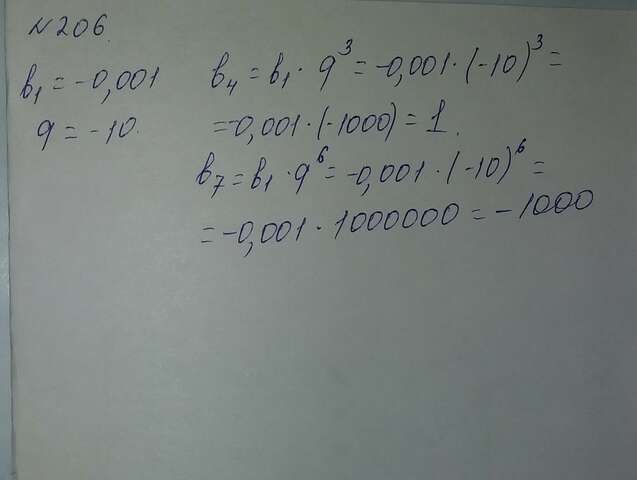 №206.
b₁ = -0,001
q = -10.
b₄ = b₁ · q³ = -0,001 · (-10)³ =
= -0,001 · (-1000) = 1.
b₇ = b₁ · q⁶ = -0,001 · (-10)⁶ =
= -0,001 · 1000000 = -1000